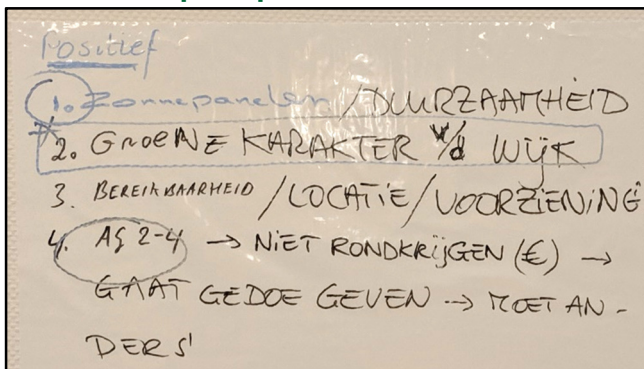 Positief
1. Zonnepanelen / DUURZAAMHEID
2. GROENE KARAKTER v/d WIJK
3. BEREIKBAARHEID / LOCATIE / VOORZIENING
4. AG 2-4 → NIET RONDKRIJGEN (€) →
GAAT GEDOE GEVEN → MOET AN-
DERS'